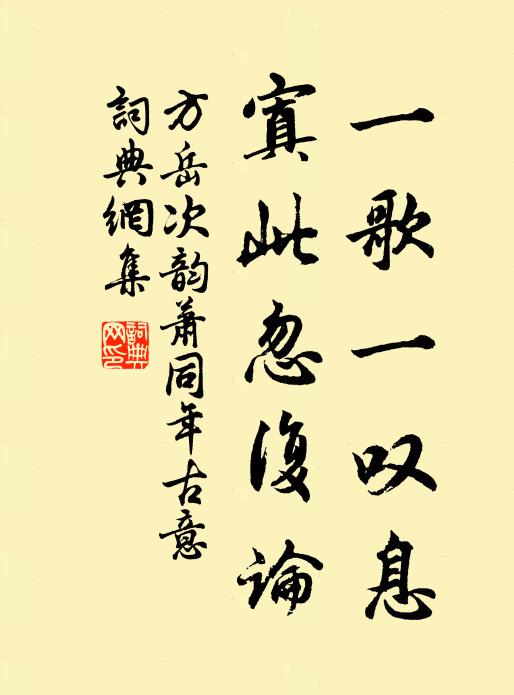 一歌一叹息
寘此忽復論
方岳次韵萧同年古意
詞典網集
詞典網印